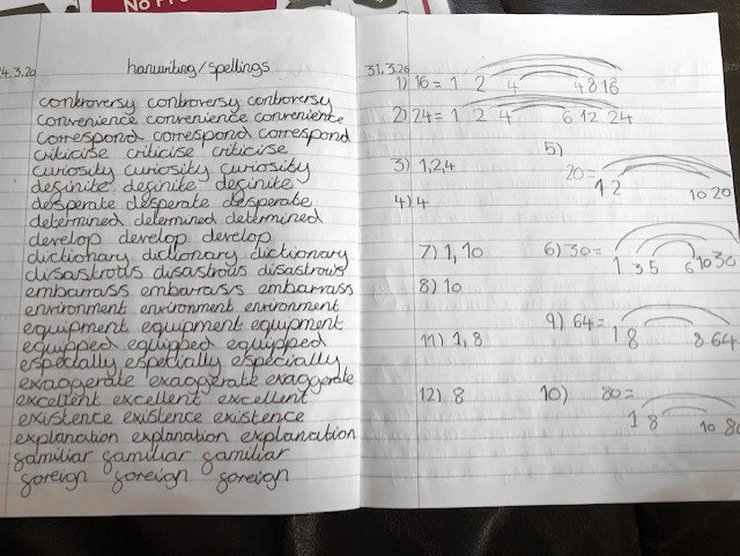 No Pro
4.3.20 hanwriting/spellings
controversy controversy controversy
convenience convenience convenience
correspond correspond correspond
criticise criticise criticise
curiosity curiosity curiosity
definite definite definite
desperate desperate desperate
determined determined determined
develop develop develop
dictionary dictionary dictionary
disastrous disastrous disastrous
embarrass embarrass embarrass
environment environment environment
equipment equipment equipment
equipped equipped equipped
especially especially especially
exaggerate exaggerate exaggerate
excellent excellent excellent
existence existence existence
explanation explanation explanation
familiar familiar familiar
foreign foreign foreign
31.3.20
1) 16 = 1 2 4 4 8 16
2) 24 = 1 2 4 6 12 24
3) 1,2,4
4) 4
5) 20 = 1 2 10 20
7) 1, 10
6) 30 = 1 3 5 6 10 30
8) 10
9) 64 = 1 8 8 64
11) 1, 8
12) 8
10) 80 = 1 8 10 80